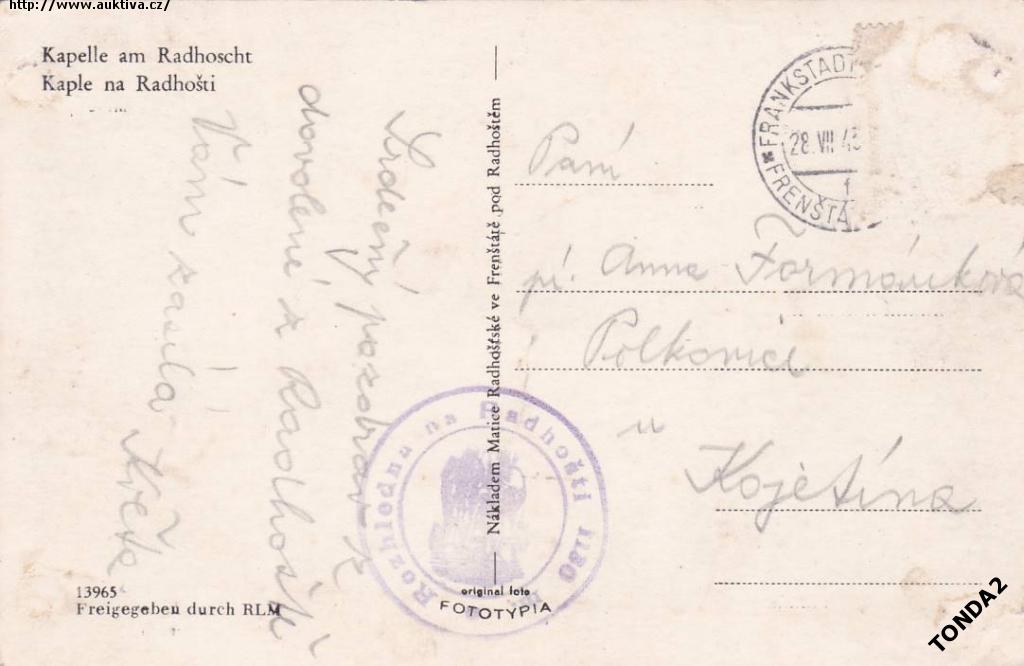 http://www.auktiva.cz/
Kapelle am Radhoscht
Kaple na Radhošti
Srdečný pozdrav z
dovolené z Radhoště
Vám zasílá
Květa
13965
Freigegeben durch RLM
Nákladem Matice Radhošťské ve Frenštátě pod Radhoštěm
original foto
FOTOTYPIA
Rozhledna na Radhošti 1130
FRANKSTADT
28.VII.43
FRENŠTÁ
Paní
Anna Formánková
Polkovice
u
Kojetína
TONDA2